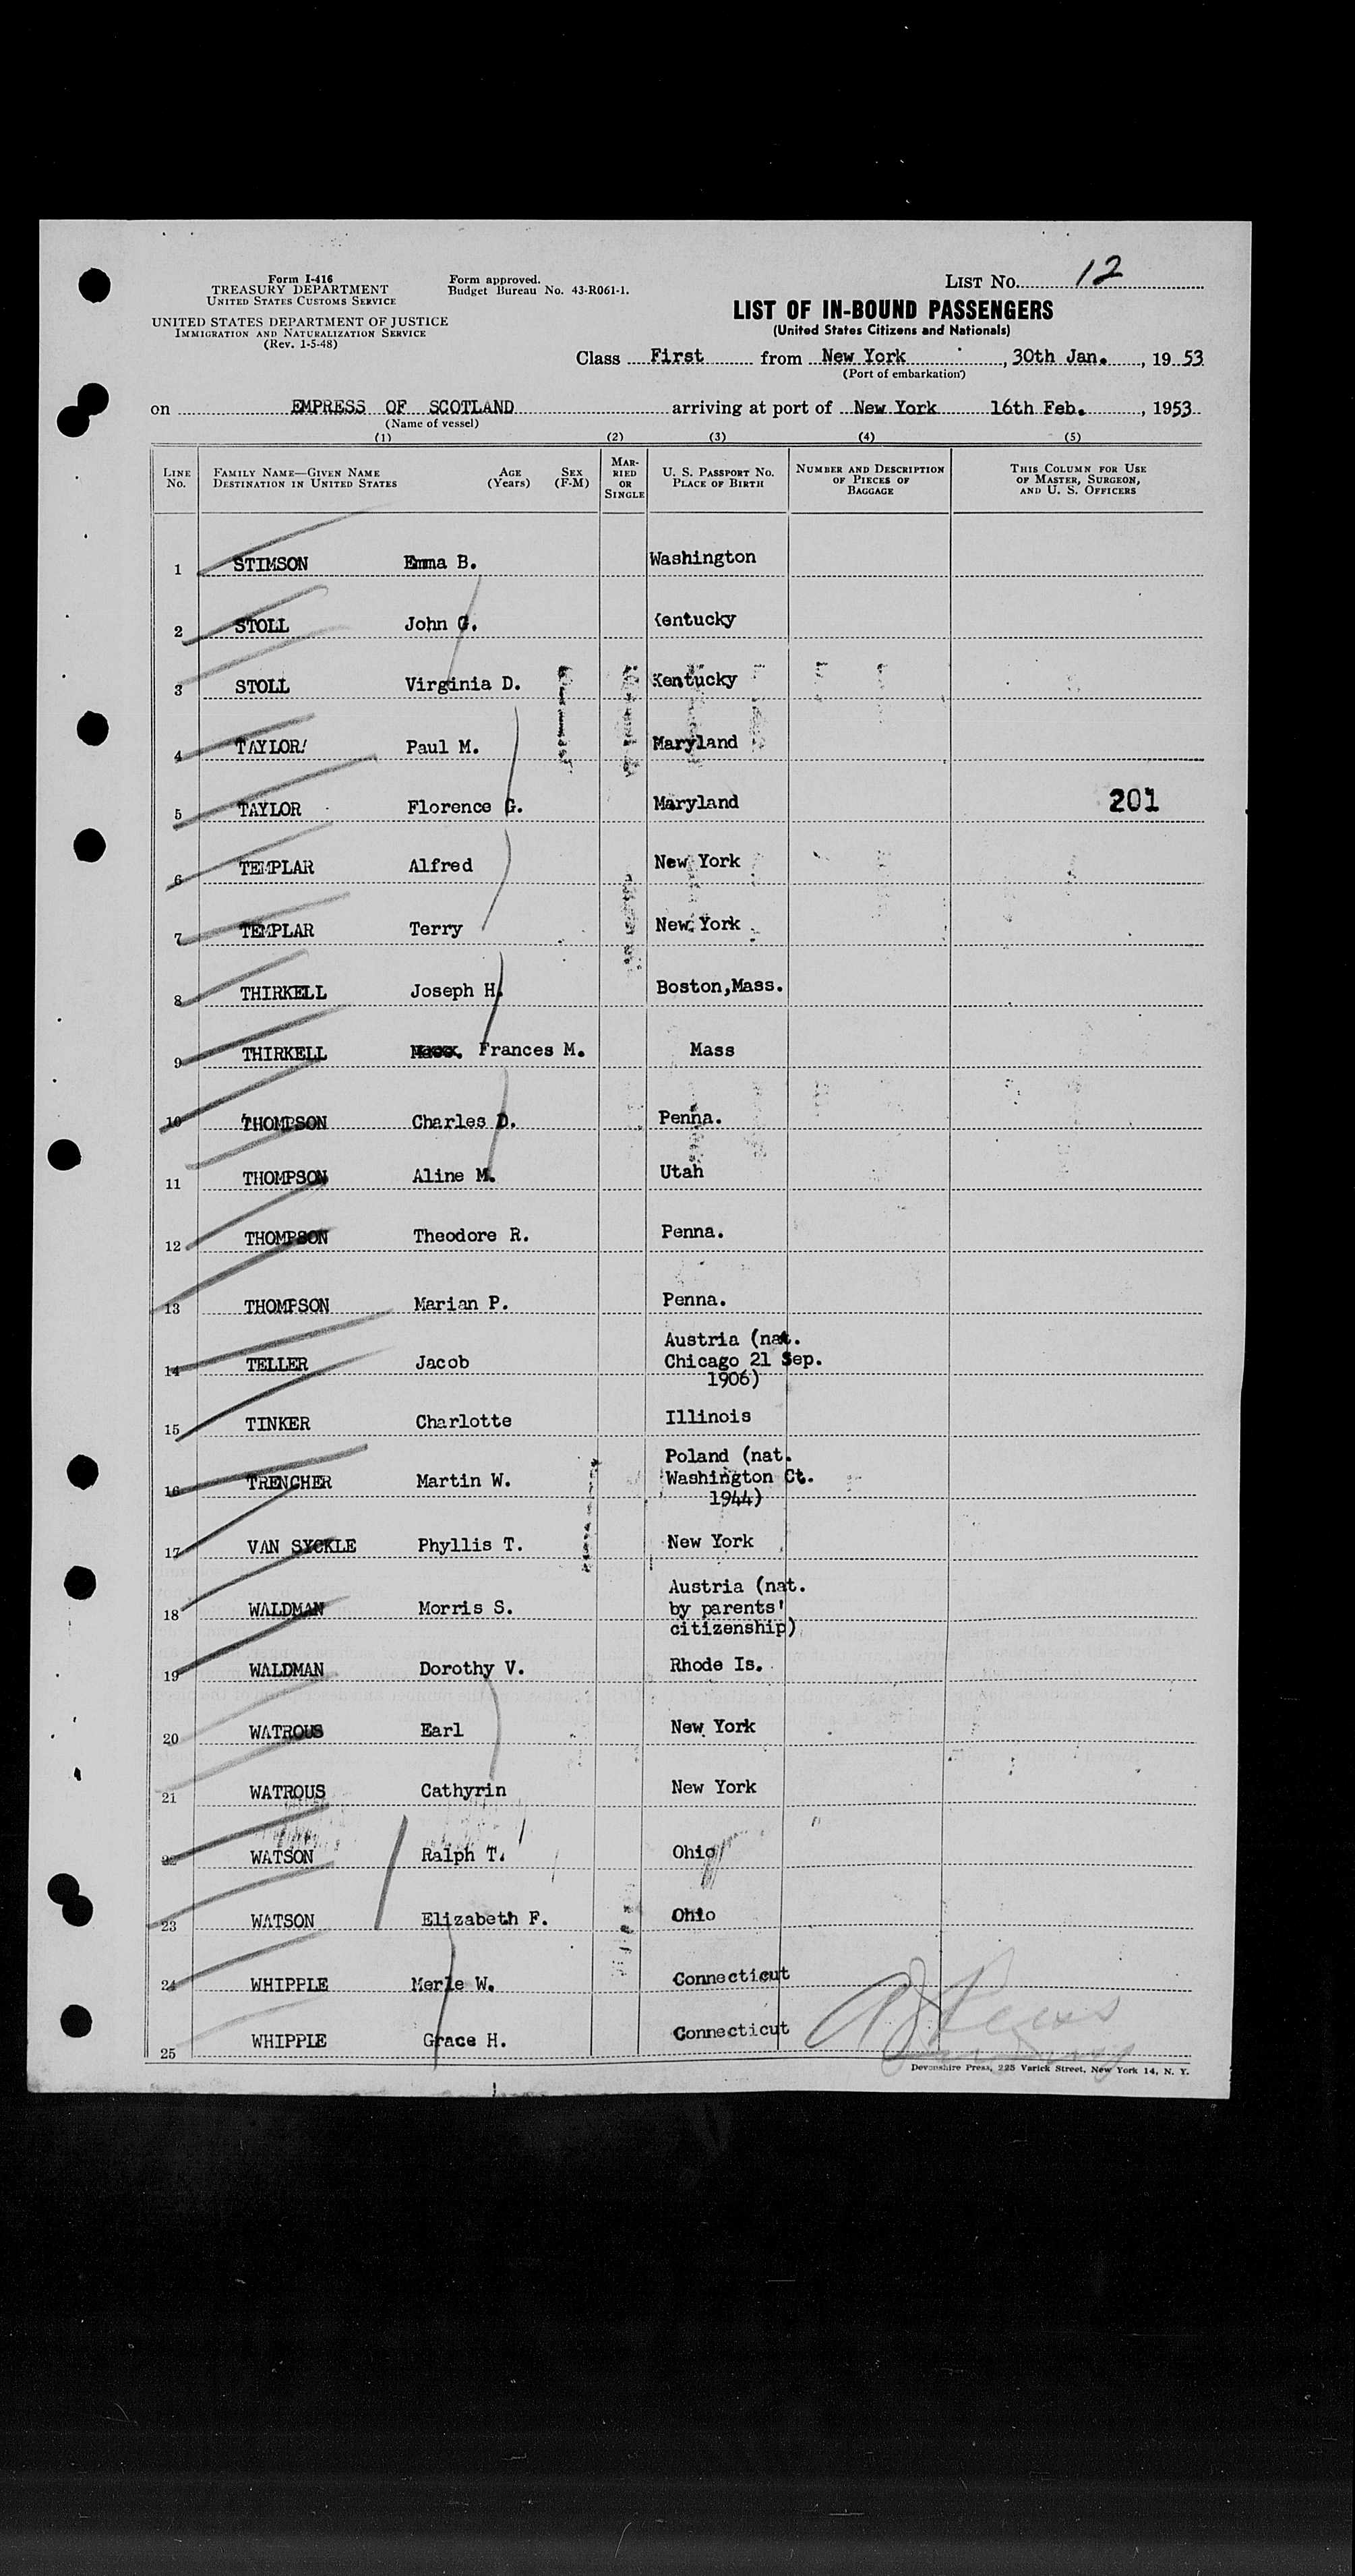 Form I-416
TREASURY DEPARTMENT
UNITED STATES CUSTOMS SERVICE
UNITED STATES DEPARTMENT OF JUSTICE
IMMIGRATION AND NATURALIZATION SERVICE
(Rev. 1-5-48)
Form approved.
Budget Bureau No. 43-R061-1.
LIST NO. 12
LIST OF IN-BOUND PASSENGERS
(United States Citizens and Nationals)
Class First from New York, 30th Jan., 1953
(Port of embarkation)
on EMPRESS OF SCOTLAND arriving at port of New York 16th Feb., 1953
(Name of vessel)
(1) (2) (3) (4) (5)
LINE No. FAMILY NAME—GIVEN NAME DESTINATION IN UNITED STATES AGE (Years) SEX (F-M) MARRIED OR SINGLE U. S. PASSPORT NO. PLACE OF BIRTH NUMBER AND DESCRIPTION OF PIECES OF BAGGAGE THIS COLUMN FOR USE OF MASTER, SURGEON, AND U. S. OFFICERS
1 STIMSON Emma B. Washington
2 STOLL John G. Kentucky
3 STOLL Virginia D. Kentucky
4 TAYLOR Paul M. Maryland
5 TAYLOR Florence G. Maryland 201
6 TEMPLAR Alfred New York
7 TEMPLAR Terry New York
8 THIRKELL Joseph H. Boston,Mass.
9 THIRKELL Frances M. Mass
10 THOMPSON Charles D. Penna.
11 THOMPSON Aline M. Utah
12 THOMPSON Theodore R. Penna.
13 THOMPSON Marian P. Penna.
14 TELLER Jacob Austria (nat. Chicago 21 Sep. 1906)
15 TINKER Charlotte Illinois
16 TRENCHER Martin W. Poland (nat. Washington Ct. 1944)
17 VAN SYCKLE Phyllis T. New York
18 WALDMAN Morris S. Austria (nat. by parents' citizenship)
19 WALDMAN Dorothy V. Rhode Is.
20 WATROUS Earl New York
21 WATROUS Cathyrin New York
22 WATSON Ralph T. Ohio
23 WATSON Elizabeth F. Ohio
24 WHIPPLE Merle W. Connecticut
25 WHIPPLE Grace H. Connecticut
Devonshire Press, 225 Varick Street, New York 14, N. Y.